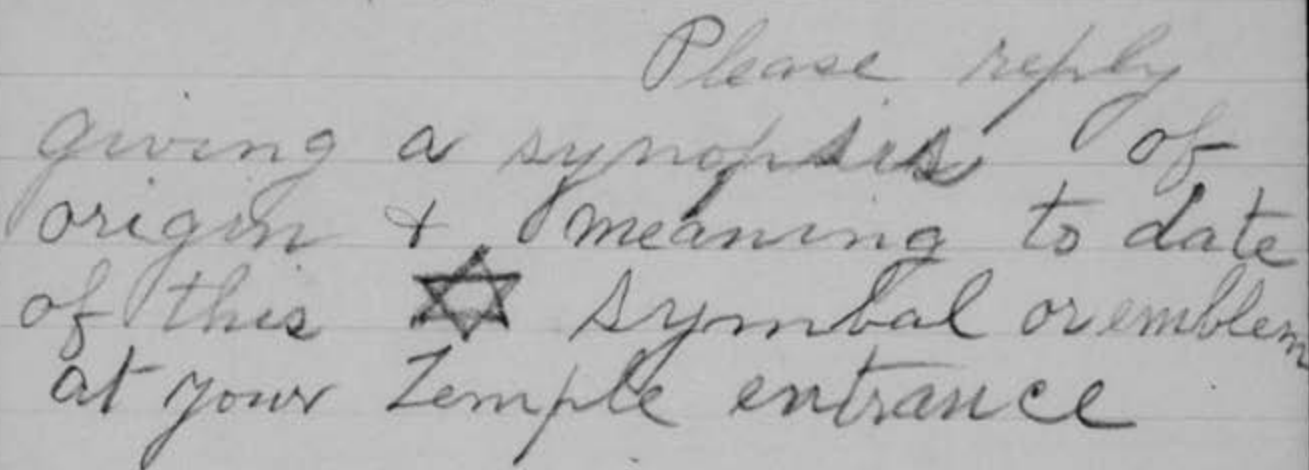 Please reply
giving a synopsis of
origin & meaning to date
of this ✡ symbal or emblem
at your Temple entrance